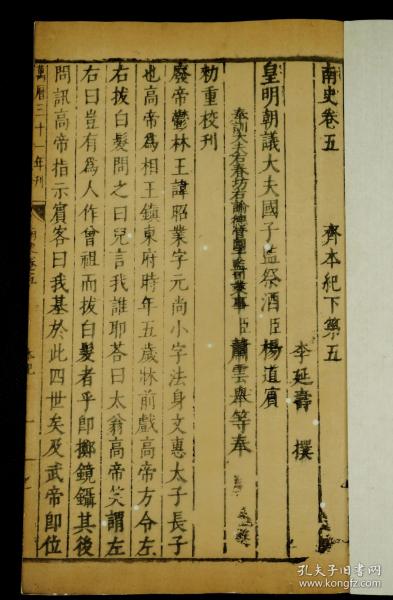 南史卷五　齊本紀下第五
李延壽　撰
皇明朝議大夫國子監祭酒臣楊道賓
奉訓大夫右春坊右諭德管國子監司業事臣蕭雲舉等奉
勑重校刊
廢帝鬱林王諱昭業字元尚小字法身文惠太子長子
也高帝為相王鎮東府時年五歲牀前戲高帝方令左
右拔白髮問之曰兒言我誰耶荅曰太翁高帝笑謂左
右曰豈有為人作曾祖而拔白髮者乎即擲鏡鑷其後
問訊高帝指示賓客曰我基於此四世矣及武帝即位
萬曆三十一年刊
孔夫子旧书网
www.kongfz.com